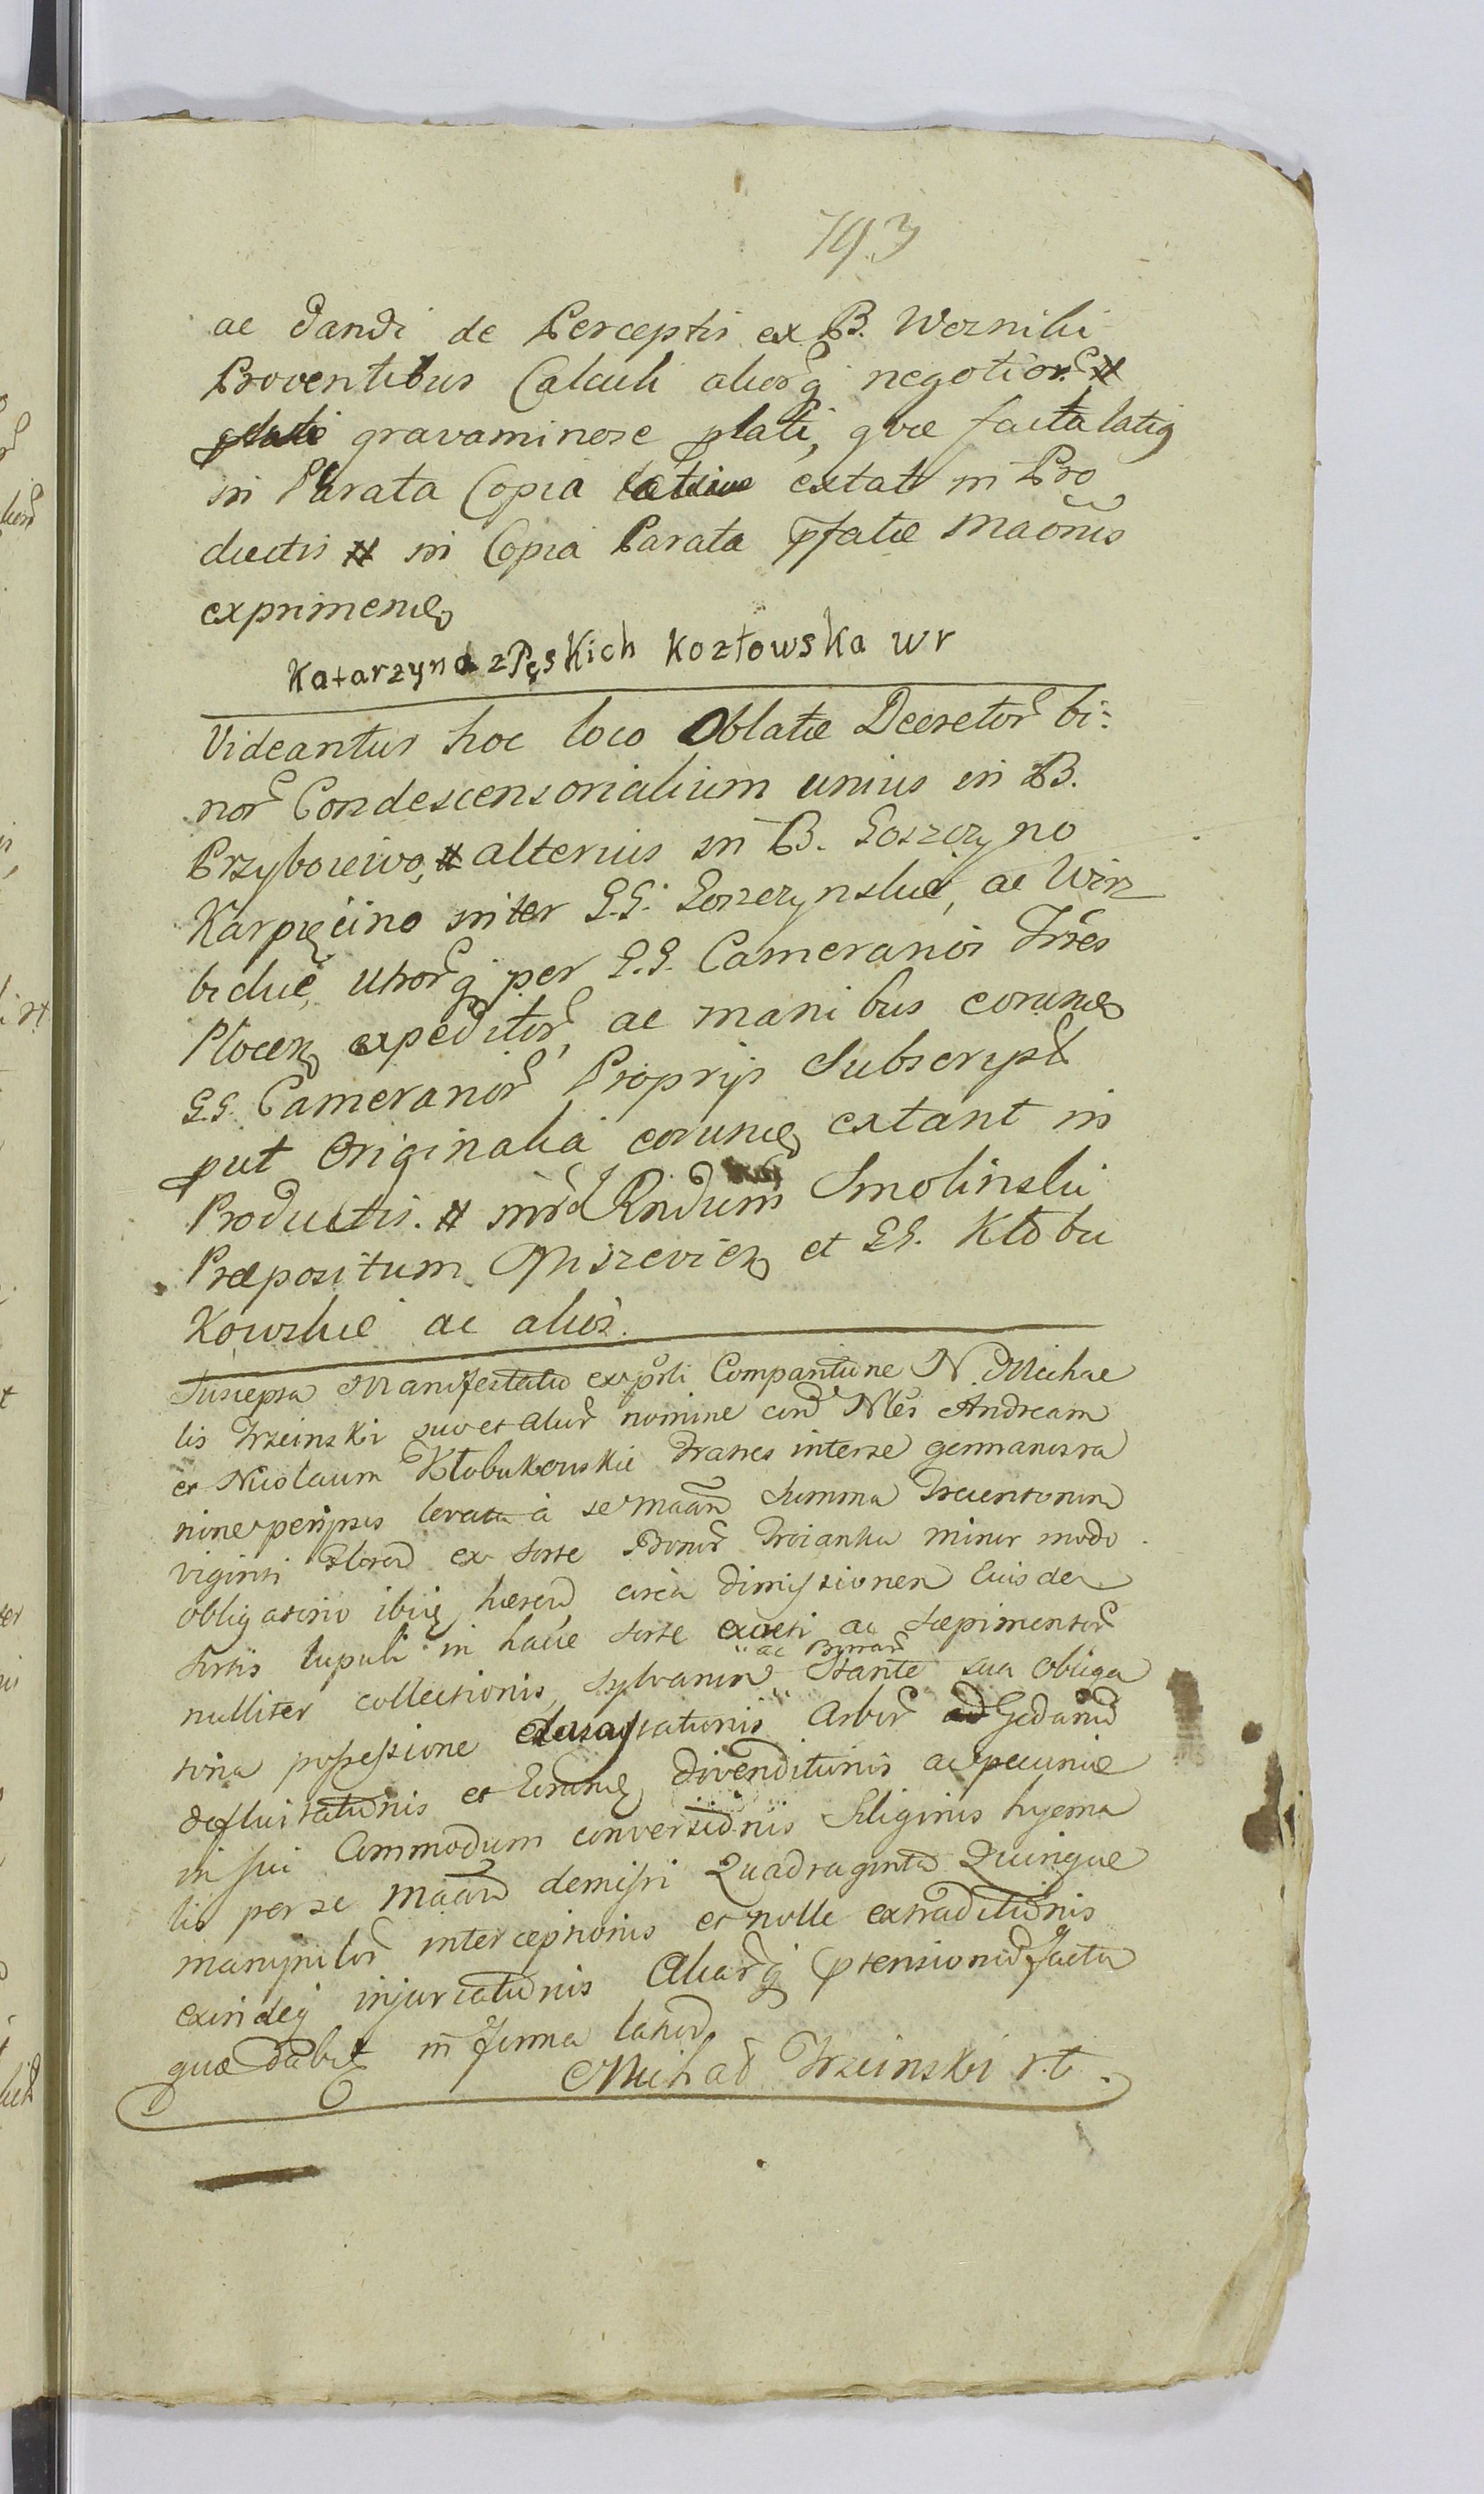 793
ac dandi de Perceptis ex B. Woznihi
Proventibus Calculi aliorq negotior #
gravaminose plati, qvæ facta latiq
in Parata Copia extat in Pro
ductis # in Copia Parata pfatæ Maonis
exprimen
Katarzyna z Pęskich Kozłowska wr
Videantur hoc loco Oblatæ Decretor bi:
nor Condescensorialium unius in B.
Przyborewo, # alterius in B. Goszczyno
Karpięcino inter G.G. Goszczynskie, ac Wirz
bickie, utrorq per G.G. Cameranios Trres
Plocen expeditor, ac manibus eorum
G.G. Cameranior Proprijs Subscript
put Originalia eorum extant in
Productis. # inr Rndum Smolinski
Præpositum Miszevien et GG. Kłobu
Kowskie ac alios.
Suscepta Manifestatio ex psti Comparitione N. Michae
lis Trzcinski suo et alior nomine con Nles Andream
et Nicolaum Kłobukowskie Fratres interse germanos ra
nine per ipsos levata à se Maan Summa Trecentorum
viginti Floren ex sorte Bonor Troianka minor modo
obligatorio ibiq hæren circa dimissionem Eiusdem
Sortis lupuli in hacce sorte ac Sæpimentor
nulliter collectionis, Sylvarum ac Borrar Stante sua obliga
toria possessione devastationis Arbor ad Gedanum
defluitationis et Eorum divenditionis ac pecuniæ
in sui Commodum conversionis Siliginis hyema
lis per se Maan demissi Quadraginta Quinque
manipulor interceptionis et nolle extraditionis
exindeq injuriationis Aliarq ptensionum facta
quæ dabit in forma latiori
Michał Trzcinski r.t.